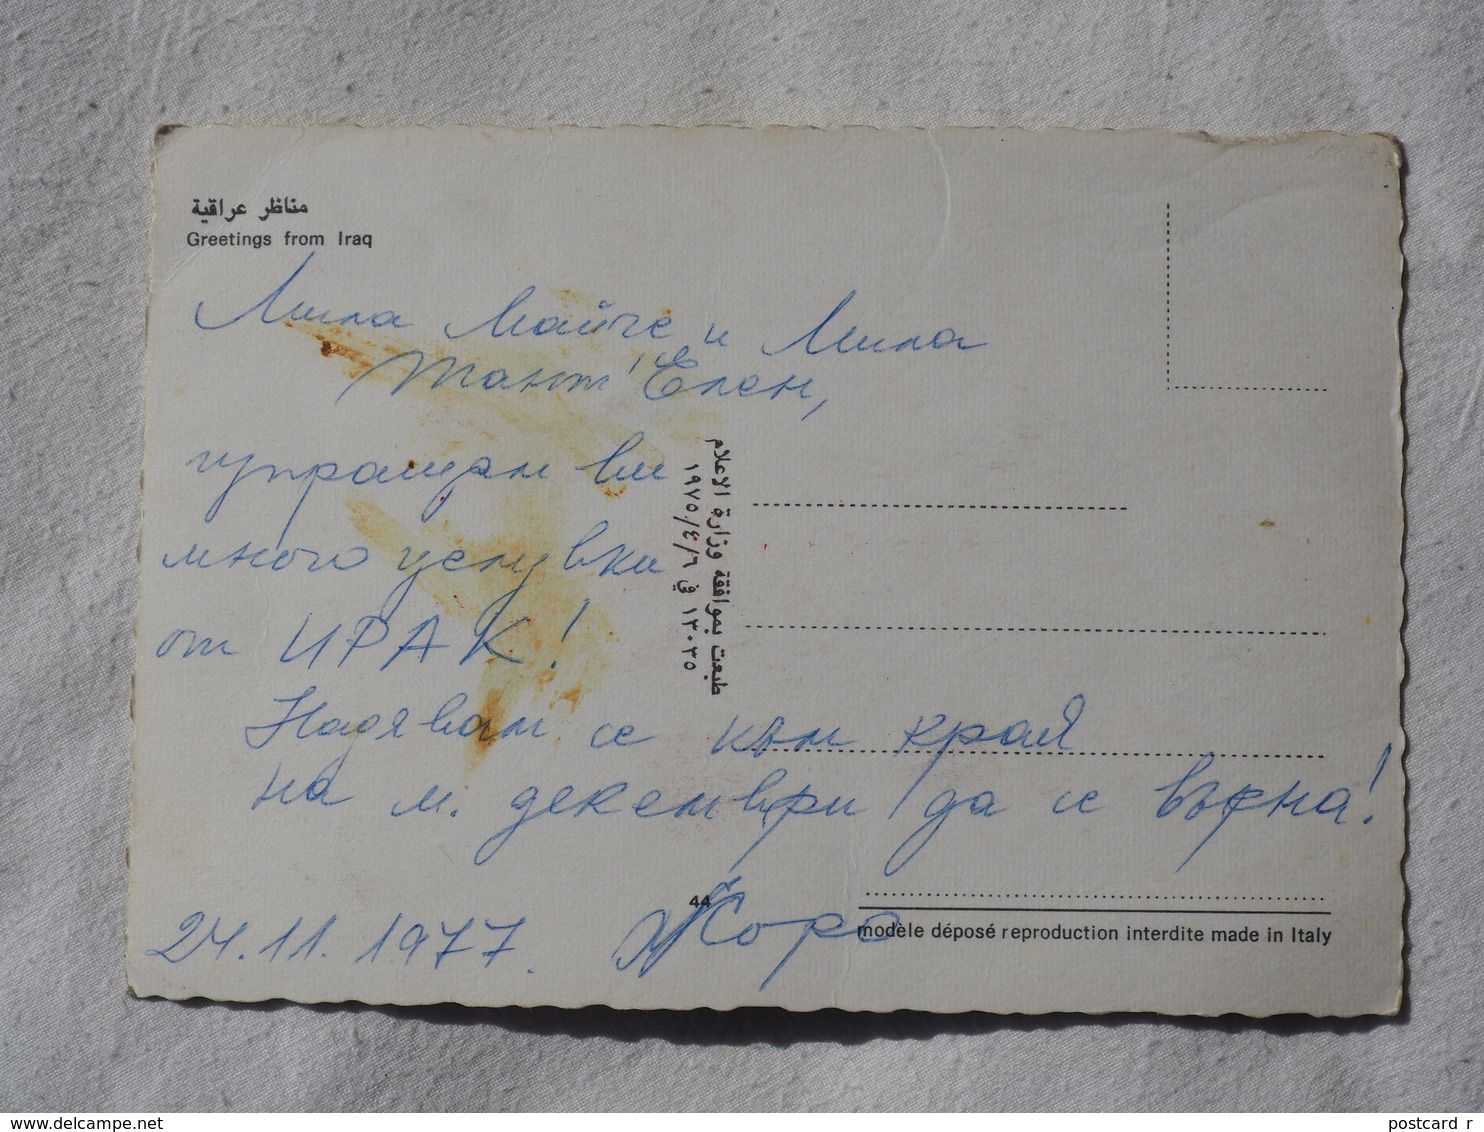 مناظر عراقية
Greetings from Iraq
Мила Майче и Мила
Тант' Елен,
изпращам ви
много целувки
от ИРАК!
Надявам се към края
на м. декември да се върна!
24.11.1977.
Жоро
طبعت بموافقة وزارة الاعلام
١٣٠٣٥ في ١٩٧٥/٤/٦
44
modèle déposé reproduction interdite made in Italy
delcampe.net
postcard r